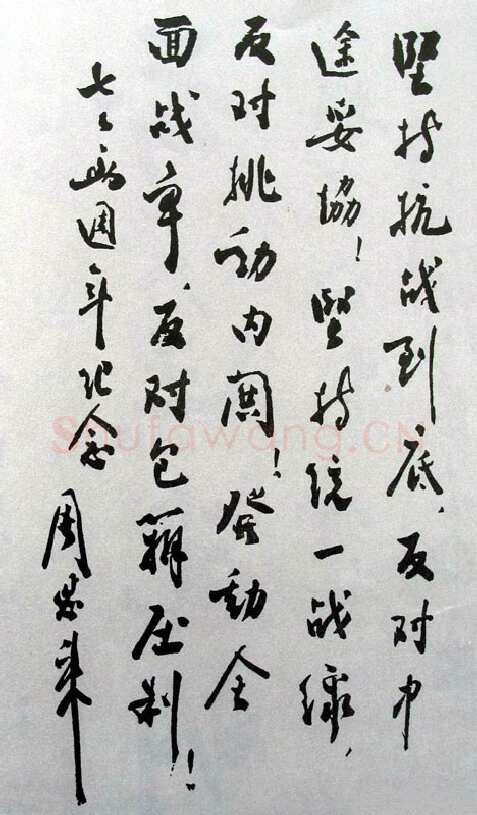 堅持抗战到底、反对中
途妥協！堅持统一战線、
反对挑动内閧！發動全
面战争、反对包辦压制！
七七两週年纪念 周恩来
Shufawang.CN